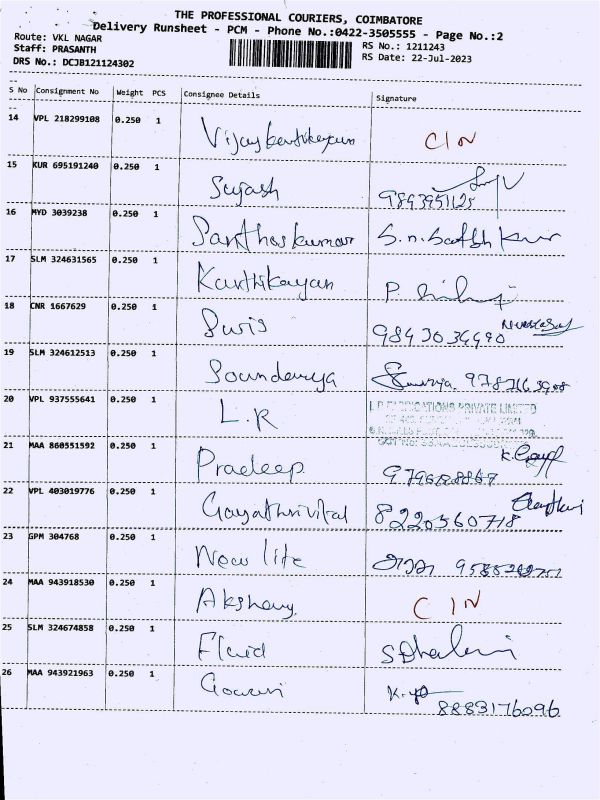 THE PROFESSIONAL COURIERS, COIMBATORE
Delivery Runsheet - PCM - Phone No.:0422-3505555 - Page No.:2
Route: VKL NAGAR RS No.: 1211243
Staff: PRASANTH RS Date: 22-Jul-2023
DRS No.: DCJB121124302
S No Consignment No Weight PCS Consignee Details Signature
14 VPL 218299108 0.250 1 Vijaykarthikeyan CIN
15 KUR 695191240 0.250 1 Sujash 9843951125
16 MYD 3039238 0.250 1 Santhoskumar S.n.Satish kur
17 SLM 324631565 0.250 1 Karthikayan P.
18 CNR 1667629 0.250 1 Suris 9843034490
19 SLM 324612513 0.250 1 Soundarya
20 VPL 937555641 0.250 1 L.R PRIVATE LIMITED
21 MAA 860551592 0.250 1 Pradeep
22 VPL 403019776 0.250 1 Gayathrivital 8220360718
23 GPM 304768 0.250 1 New lite
24 MAA 943918530 0.250 1 Akshay CIN
25 SLM 324674858 0.250 1 Fluid
26 MAA 943921963 0.250 1 Gowri 8883176096